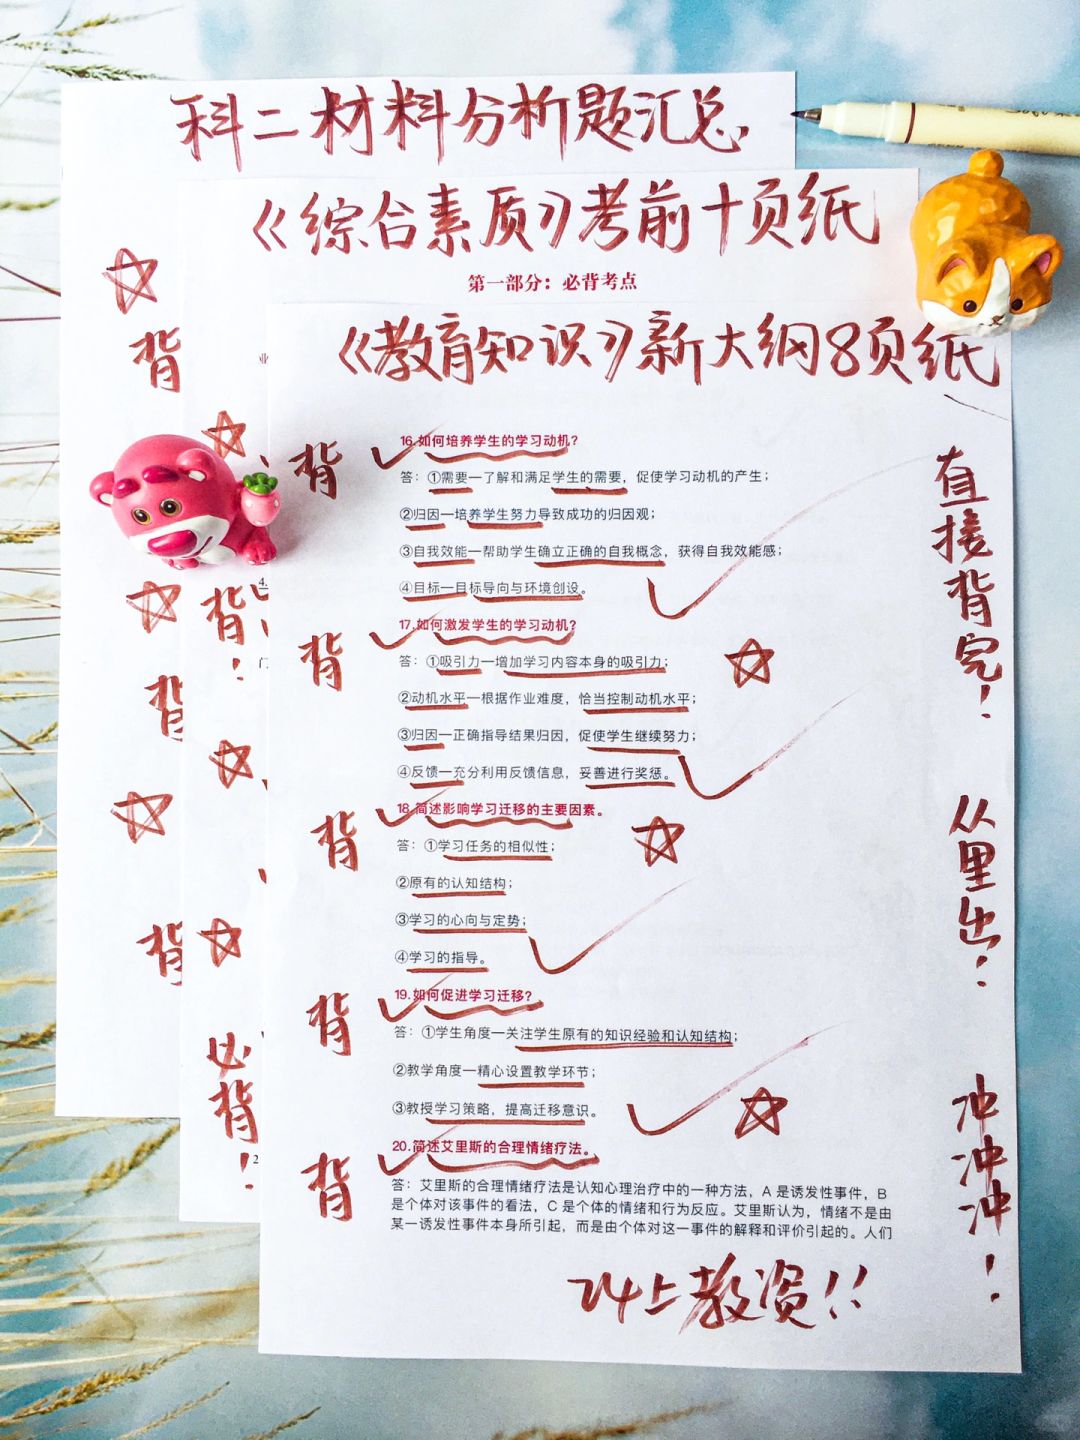 科二材料分析题汇总
《综合素质》考前十页纸
第一部分：必背考点
《教育知识》新大纲8页纸
背
背
背
背
背！
必背！
背
16.如何培养学生的学习动机？
答：①需要—了解和满足学生的需要，促使学习动机的产生；
②归因—培养学生努力导致成功的归因观；
③自我效能—帮助学生确立正确的自我概念，获得自我效能感；
④目标—目标导向与环境创设。
背
17.如何激发学生的学习动机？
答：①吸引力—增加学习内容本身的吸引力；
②动机水平—根据作业难度，恰当控制动机水平；
③归因—正确指导结果归因，促使学生继续努力；
④反馈—充分利用反馈信息，妥善进行奖惩。
背
18.简述影响学习迁移的主要因素。
答：①学习任务的相似性；
②原有的认知结构；
③学习的心向与定势；
④学习的指导。
背
19.如何促进学习迁移？
答：①学生角度—关注学生原有的知识经验和认知结构；
②教学角度—精心设置教学环节；
③教授学习策略，提高迁移意识。
背
20.简述艾里斯的合理情绪疗法。
答：艾里斯的合理情绪疗法是认知心理治疗中的一种方法，A 是诱发性事件，B
是个体对该事件的看法，C 是个体的情绪和行为反应。艾里斯认为，情绪不是由
某一诱发性事件本身所引起，而是由个体对这一事件的解释和评价引起的。人们
直接背完！
从里出！
冲冲冲！
24上教资！！